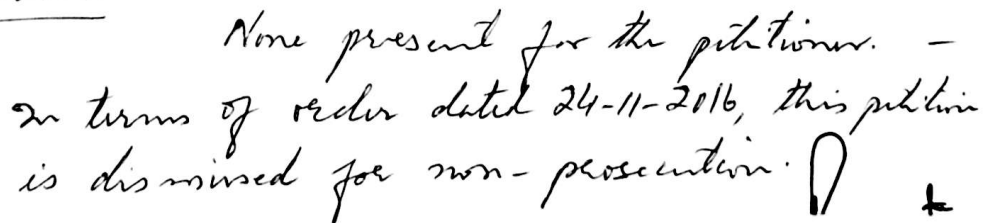 None present for the petitioner. -
In terms of order dated 24-11-2016, this petition
is dismissed for non-prosecution.